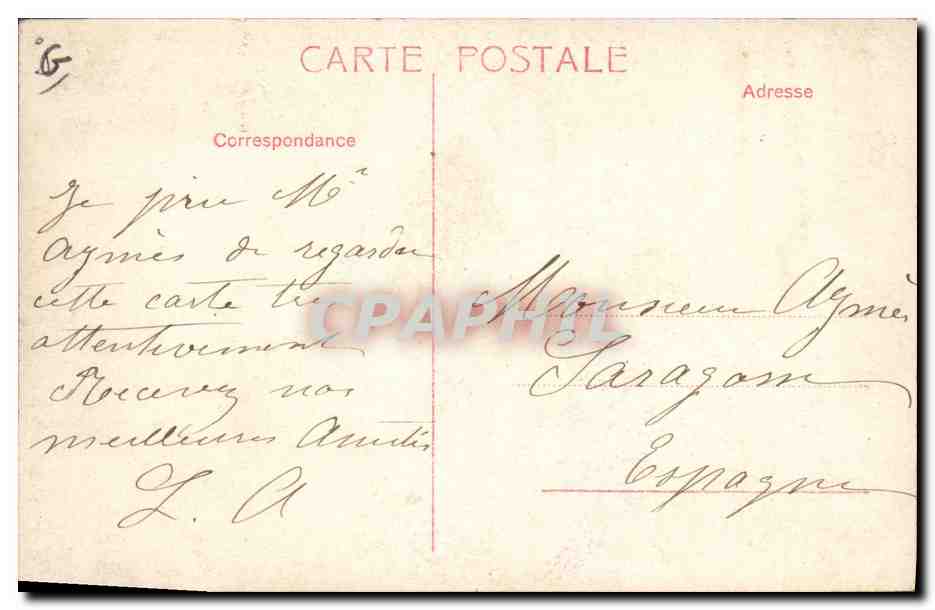 CARTE POSTALE
Correspondance
Je prie Mr
Aymès de regarder
cette carte très
attentivement
Recevez nos
meilleures Amitiés
L. A
Adresse
Monsieur Aymès
Saragosse
Espagne
CPAPHIL